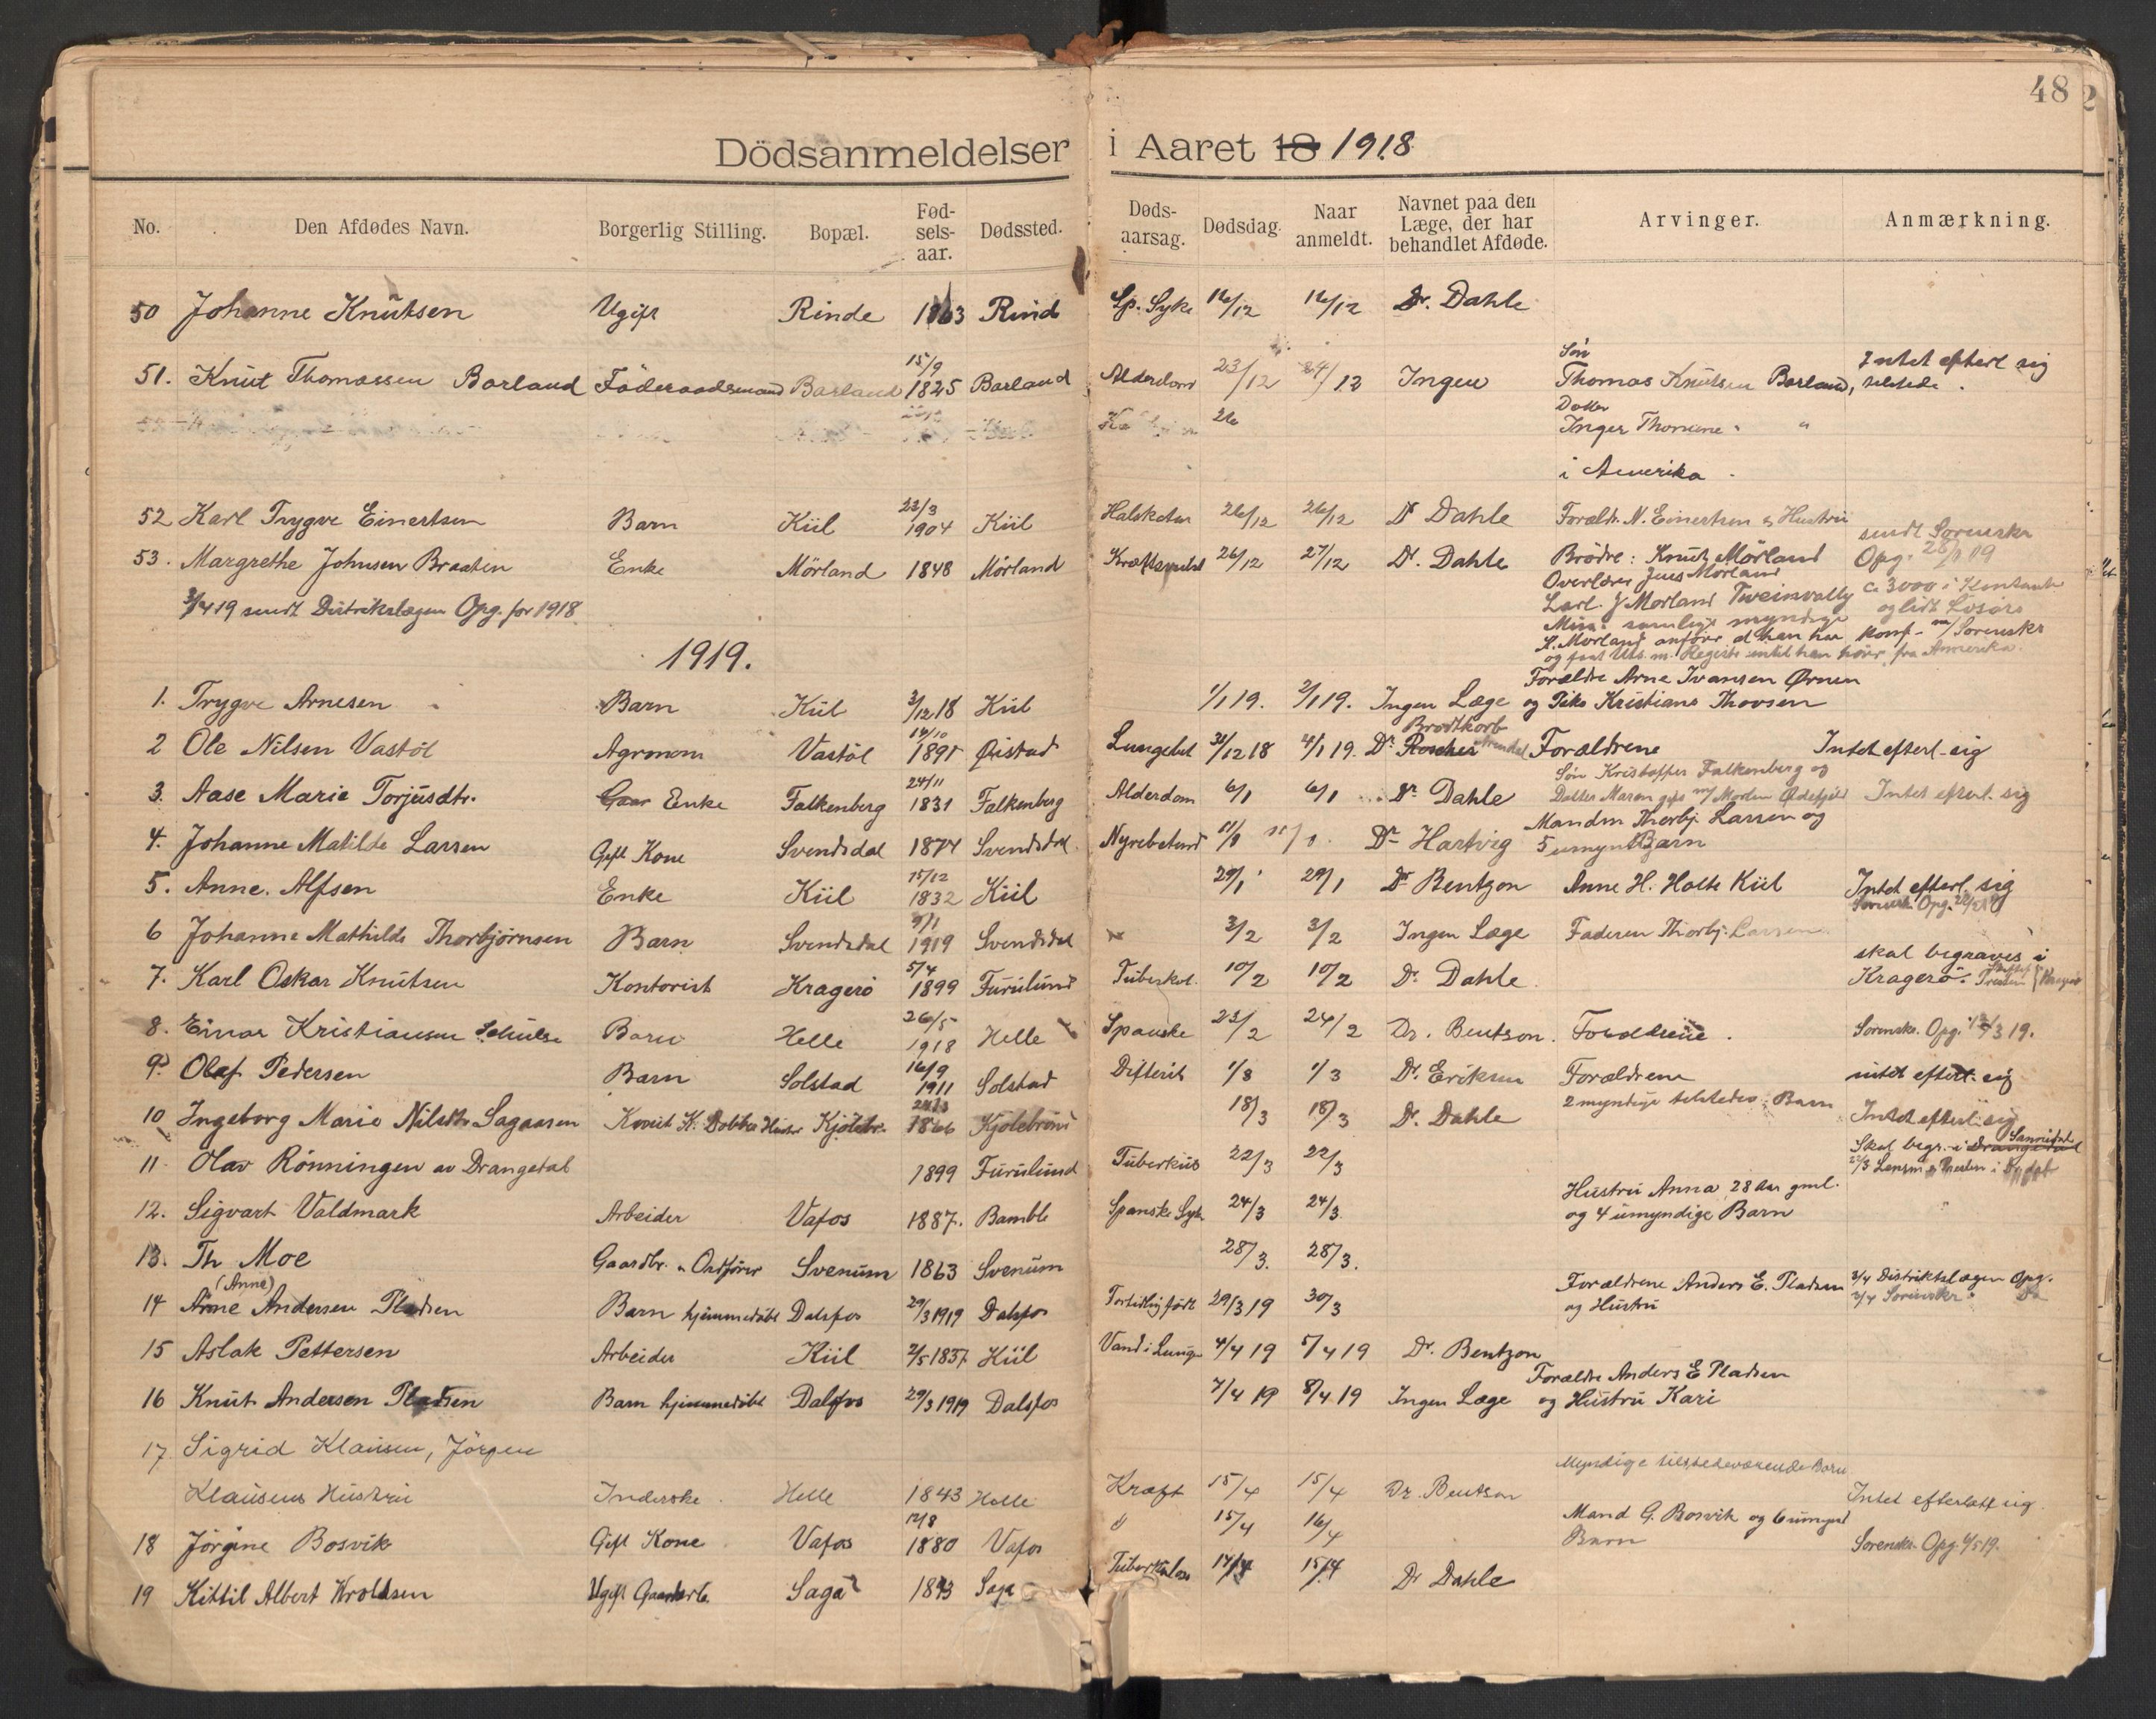 48
Dödsanmeldelser i Aaret 18 1918
No. Den Afdødes Navn. Borgerlig Stilling. Bopæl. Fød-sels-aar. Dødssted. Døds-aarsag. Dødsdag. Naar anmeldt. Navnet paa den Læge, der har behandlet Afdøde. Arvinger. Anmærkning.
50 Johanne Knutsen Ugift Rinde 1863 Rind Sp. Syke 16/12 16/12 Dr. Dahle
51. Knut Thomassen Borland Föderaadsmand Borland 15/9 1825 Borland Alderdom 23/12 24/12 Ingen Søn Thomas Knutsen Borland, tilstede. Intet efterl sig
Datter
26 Inger Thomine " "
i Amerika
52 Karl Trygve Einertsen Barn Kiil 23/3 1904 Kiil 26/12 26/12 Dr Dahle Forældr. N. Einertsen & Hustru
53. Margrethe Johnsen Braaten Enke Mörland 1848 Mörland 26/12 27/12 Dr. Dahle Brödre: Knut Mörland sendt Sorenskr Opg. 28/1 19
Overlærer Jens Mørland
3/4 19 sendt Distriktslægen Opg. for 1918. Larl. J Morland ca 3000 i Kontanter og lidt Løsøre
samlige myndige
S. Morland anfører at han har konf. m/ Sorenskr
og faat Uts. m. Registr intil han hører fra Amerika.
1919.
Forældre Arne Ivansen Ørnen
1. Trygve Arnesen Barn Kiil 3/12 18 Kiil 1/1 19. 2/1 19. Ingen Læge og Kristiane Thovsen
2 Ole Nilsen Vastöl Agronom Vastöl 14/10 1891 Øistad 31/12 18 4/1 19. Dr Brodtkorb Forældrene Intet efterl. sig
3. Aase Marie Torjusdtr. Gaar Enke Falkenberg 24/11 1831 Falkenberg Alderdom 6/1 6/1 Dr Dahle Søn Kristoffer Falkenberg og
Datter Maren gift m/ Morten Intet efterl. sig
4. Johanne Matilde Larsen Gift Kone Svendsdal 1874 Svendsdal Dr Hartvig Manden Thorbj. Larsen og
5 umynd Barn
5. Anne. Alfsen Enke Kiil 15/12 1832 Kiil 29/1 29/1 Dr Bentzon Anne H. Holte Kiil Intet efterl. sig
Sorensk. Opg.
6 Johanne Mathilde Thorbjørnsen Barn Svendsdal 9/1 1919 Svendsdal 3/2 3/2 Ingen Læge Faderen Thorbj. Larsen
7. Karl Oskar Knutsen Kontorist Kragerö 5/4 1899 Furulund Tuberkul. 10/2 10/2 Dr. Dahle skal begraves i Kragerö.
8. Einar Kristiansen Schulse Barn Helle 26/5 1918 Helle Spanske 23/2 24/2 Dr. Bentson. Forældrene. Sorenskr. Opg. 12/3 19.
9. Olaf Pedersen Barn Solstad 16/9 1911 Solstad Difterit 1/3 1/3 Dr. Eriksen Forældrene intet efterl. sig
10 Ingeborg Marie Nilsdtr Sagaasen Knut K. Dobbe Hustr Kjölebr. 1866 Kjölebrönd 18/3 18/3 Dr. Dahle 2 myndige tilstedev. Barn Intet efterl. sig
11. Olav Rönningen av Drangedal 1899 Furulund Tuberkus 22/3 22/3 Skal begr. i Drangedal Sannidal
22/3 Lensm & Presten i
12. Sigvart Valdmark Arbeider Vafos 1887. Bamble Spanske Syk 24/3 24/3. Hustru Anna 28 Aar gml.
og 4 umyndige Barn
13. Th Moe Gaardbr. & Ordfører Svenum 1863 Svenum 28/3. 28/3.
(Anne)
14 Arne Andersen Pladsen Barn hjemmedöbt Dalsfos 29/3 1919 Dalsfos Fortidlig født 29/3 19 30/3 Forældrene Anders E. Pladsen og Hustru 3/4 Distriktslægen Opg.
3/4 Sorenskr. Do
15 Aslak Pettersen Arbeider Kiil 2/5 1837 Kiil Vand i Lunge 4/4 19 5/4 19 Dr. Bentzon
16 Knut Andersen Pladsen Barn hjemmedöbt Dalsfos 29/3 1919 Dalsfos 7/4 19 8/4 19 Ingen Læge Forældre Anders E Pladsen og Hustru Kari
17. Sigrid Klausen, Jörgen
Klausens Hustru Inderske. Helle 1843 Helle Kræft 15/4 15/4 Dr. Bentson Myndige tilstedeværende Barn Intet efterlatt sig.
18 Jörgine Bosvik Gift Kone Vafos 12/8 1880 Vafos " 15/4 16/4 Mand G. Bosvik og 6 umynd Barn Sorenskr. Opg. 4/5 19.
19 Kittil Albert Kroldsen Ugift Gaardbr. Saga 1893 Saga Tuberkulose 14/4 15/4 Dr Dahle